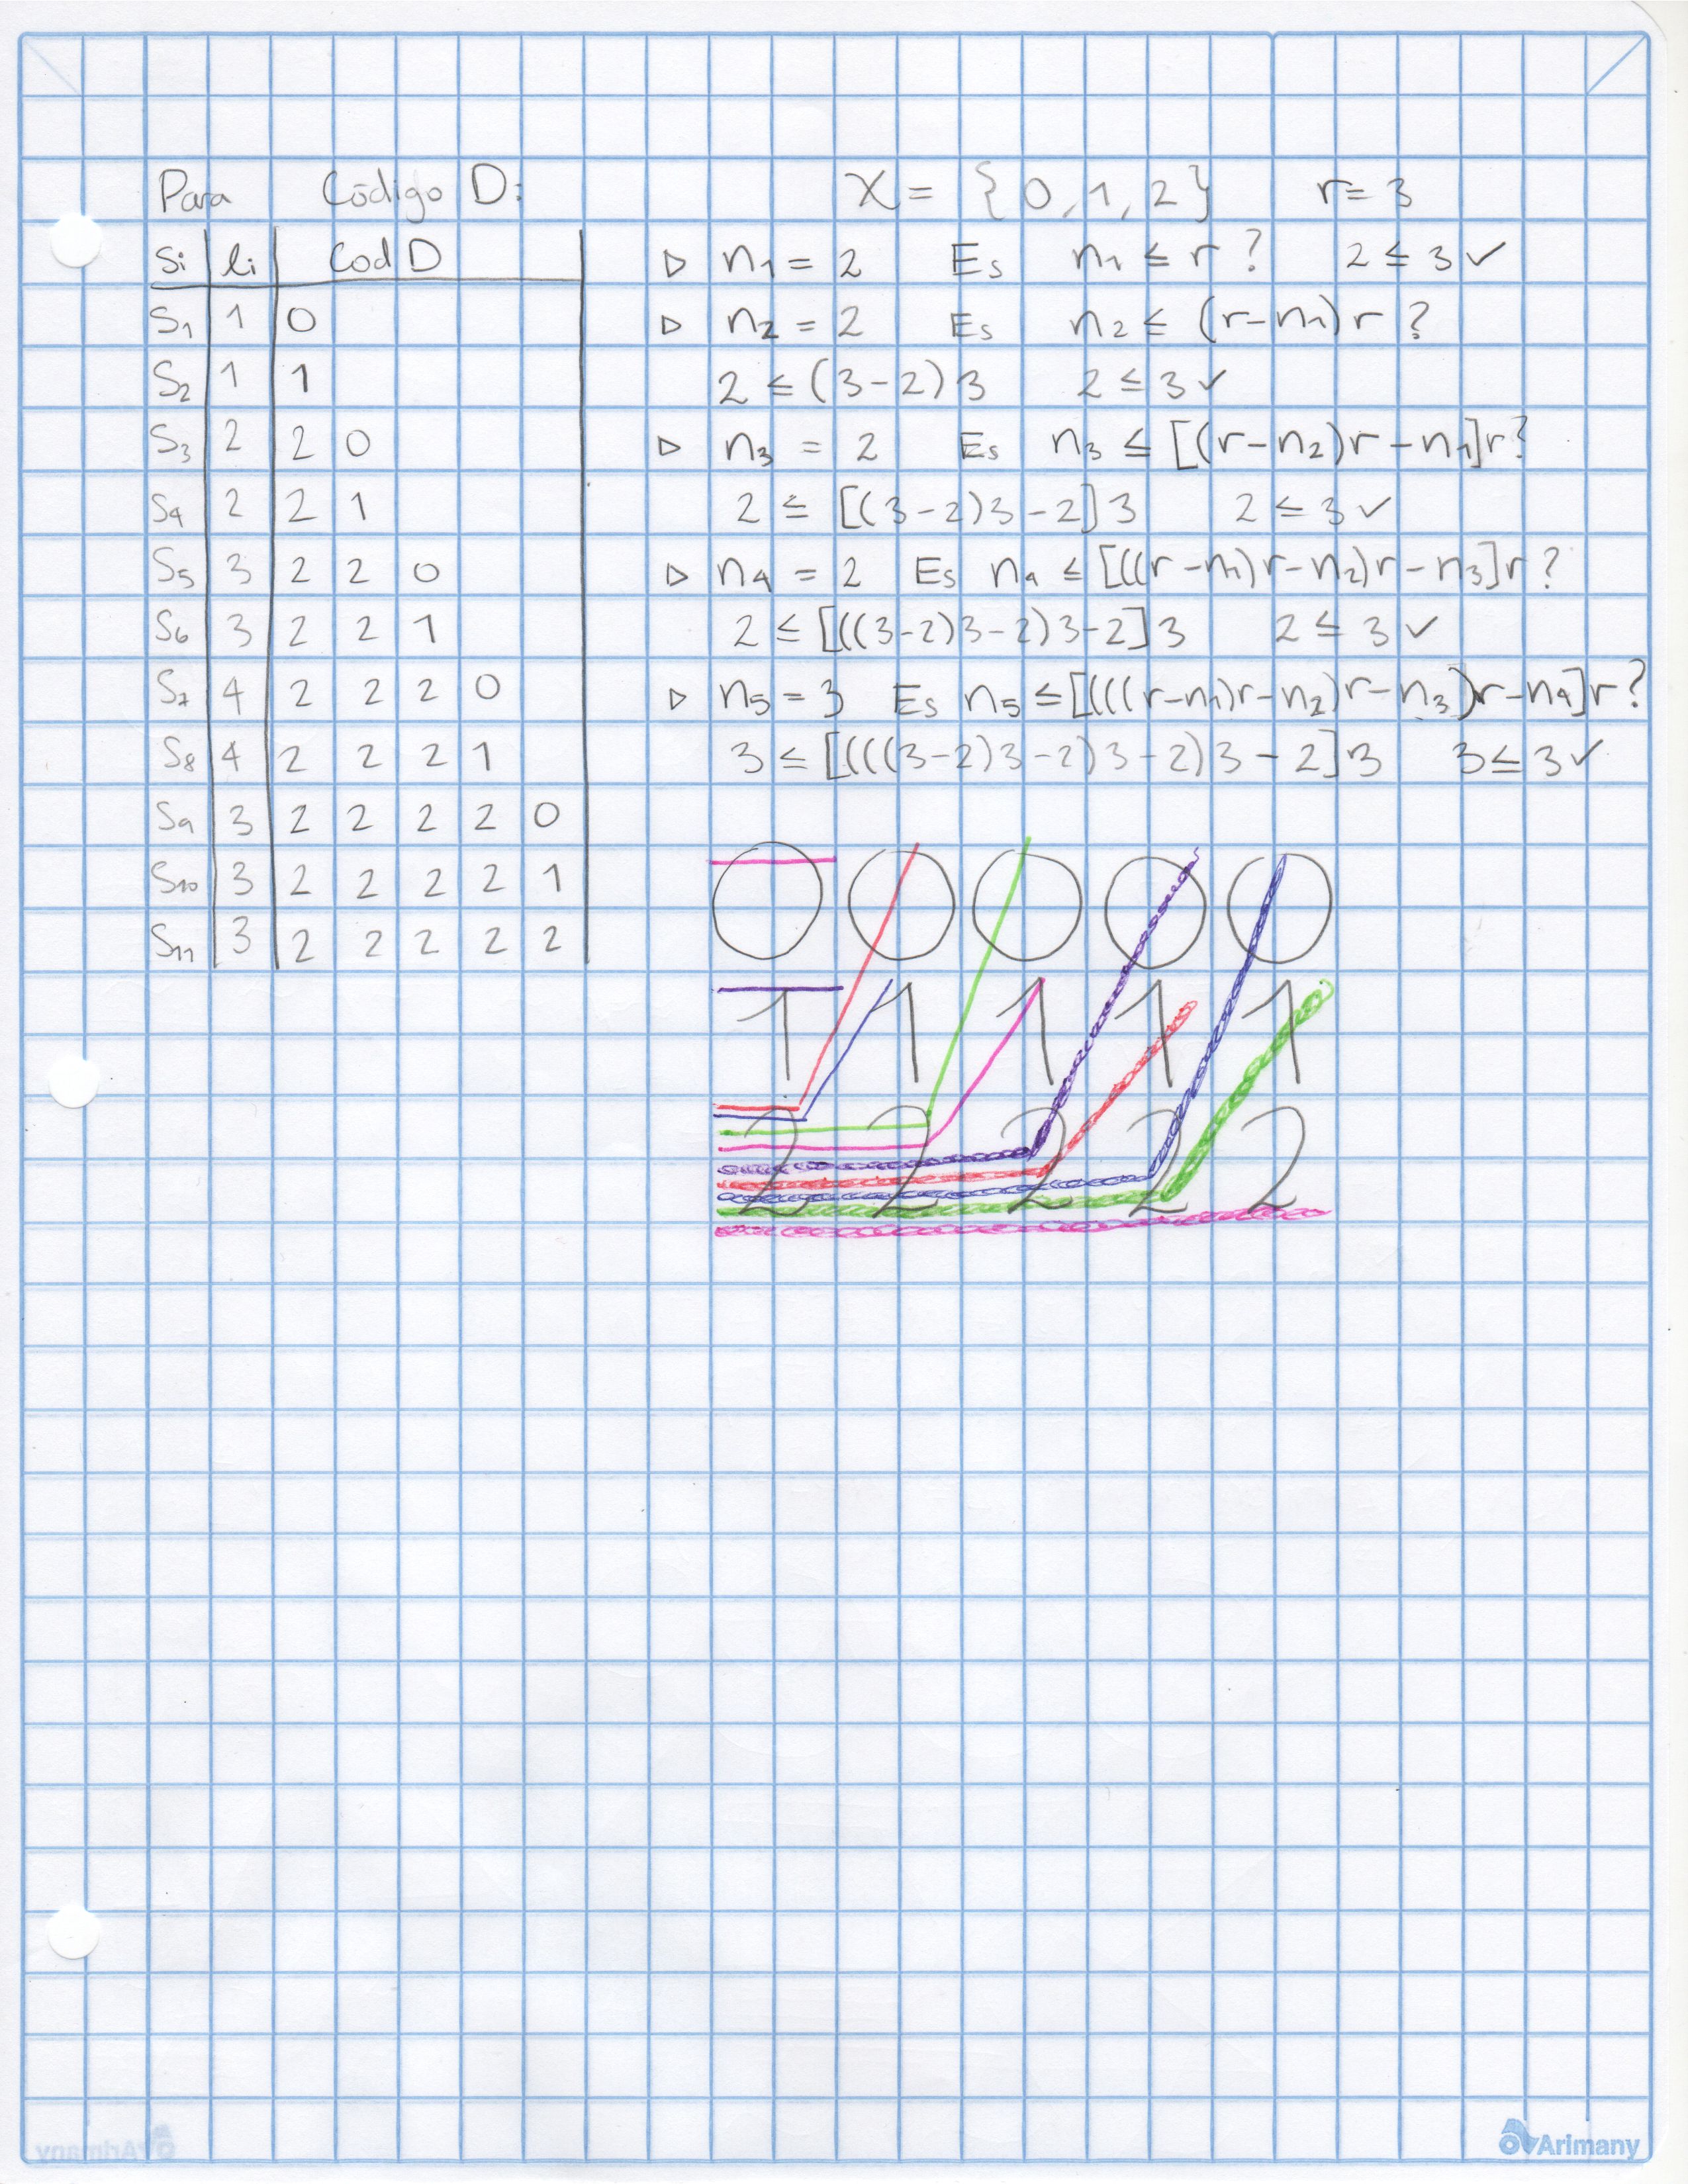 Para Código D:
X = {0, 1, 2} r = 3
Si li Cod D
S1 1 0
S2 1 1
S3 2 2 0
S4 2 2 1
S5 3 2 2 0
S6 3 2 2 1
S7 4 2 2 2 0
S8 4 2 2 2 1
S9 3 2 2 2 2 0
S10 3 2 2 2 2 1
S11 3 2 2 2 2 2
▷ n1 = 2 Es n1 ≤ r? 2 ≤ 3 ✓
▷ n2 = 2 Es n2 ≤ (r-n1)r?
2 ≤ (3-2)3 2 ≤ 3 ✓
▷ n3 = 2 Es n3 ≤ [(r-n2)r-n1]r?
2 ≤ [(3-2)3-2]3 2 ≤ 3 ✓
▷ n4 = 2 Es n4 ≤ [((r-n1)r-n2)r-n3]r?
2 ≤ [((3-2)3-2)3-2]3 2 ≤ 3 ✓
▷ n5 = 3 Es n5 ≤ [(((r-n1)r-n2)r-n3)r-n4]r?
3 ≤ [(((3-2)3-2)3-2)3-2]3 3 ≤ 3 ✓
0 0 0 0 0
1 1 1 1 1
2 2 2 2 2
Arimany